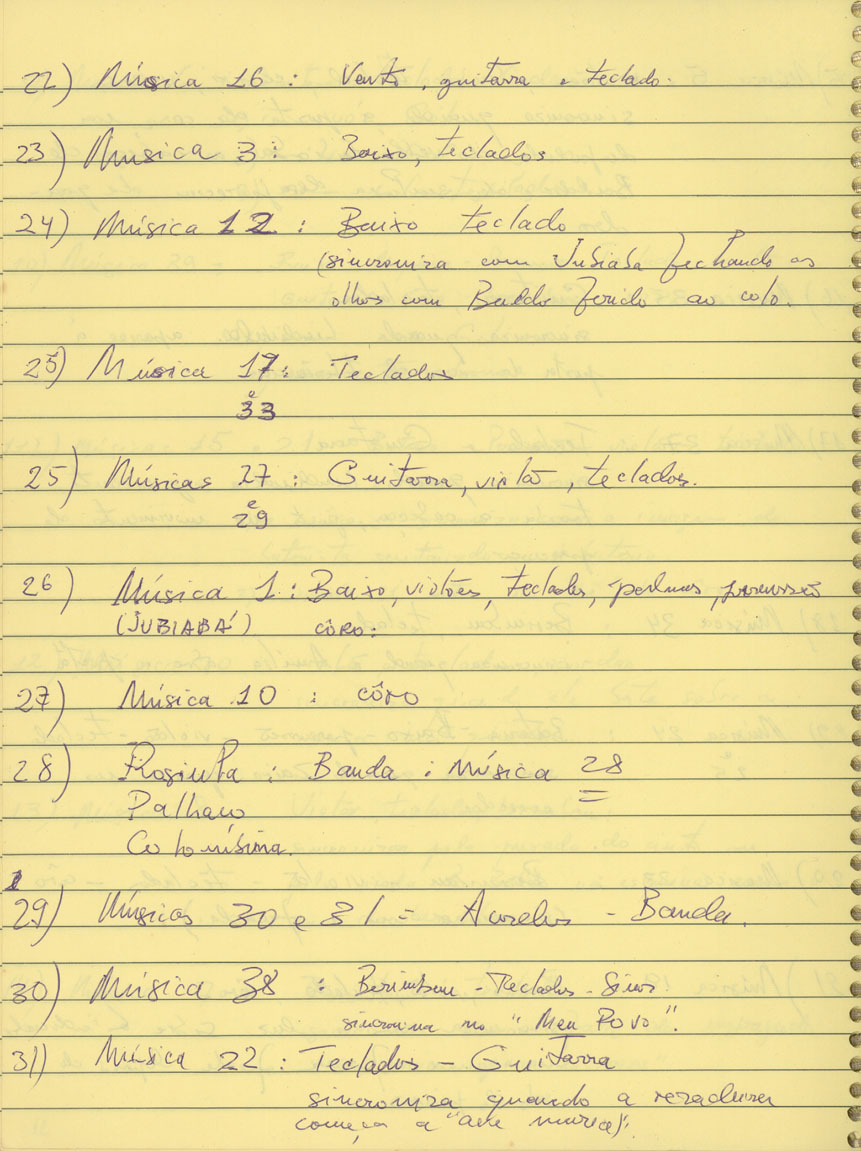 22) Música 16 : Vento, guitarra e teclado.
23) Musica 3 : Baixo, teclados
24) Música 12 : Baixo teclado
(sincroniza com Jubiabá fechando os
olhos com Baldo ferido ao colo.
25) Música 17 : Teclados
e
33
25) Músicas 27 : Guitarra, violão, teclados.
e
29
26) Música 1 : Baixo, violões, teclados, palmas, percussão
(JUBIABÁ) côro:
27) Música 10 : côro
28) : Banda : Música 28
Palhaço
29) Músicas 30 e 31 = - Banda.
30) Música 38 : Berimbau - Teclados - Sinos
sincroniza no "Meu Povo".
31) Música 22 : Teclados - Guitarra
sincroniza quando a rezadeira
começa a "ave maria)".